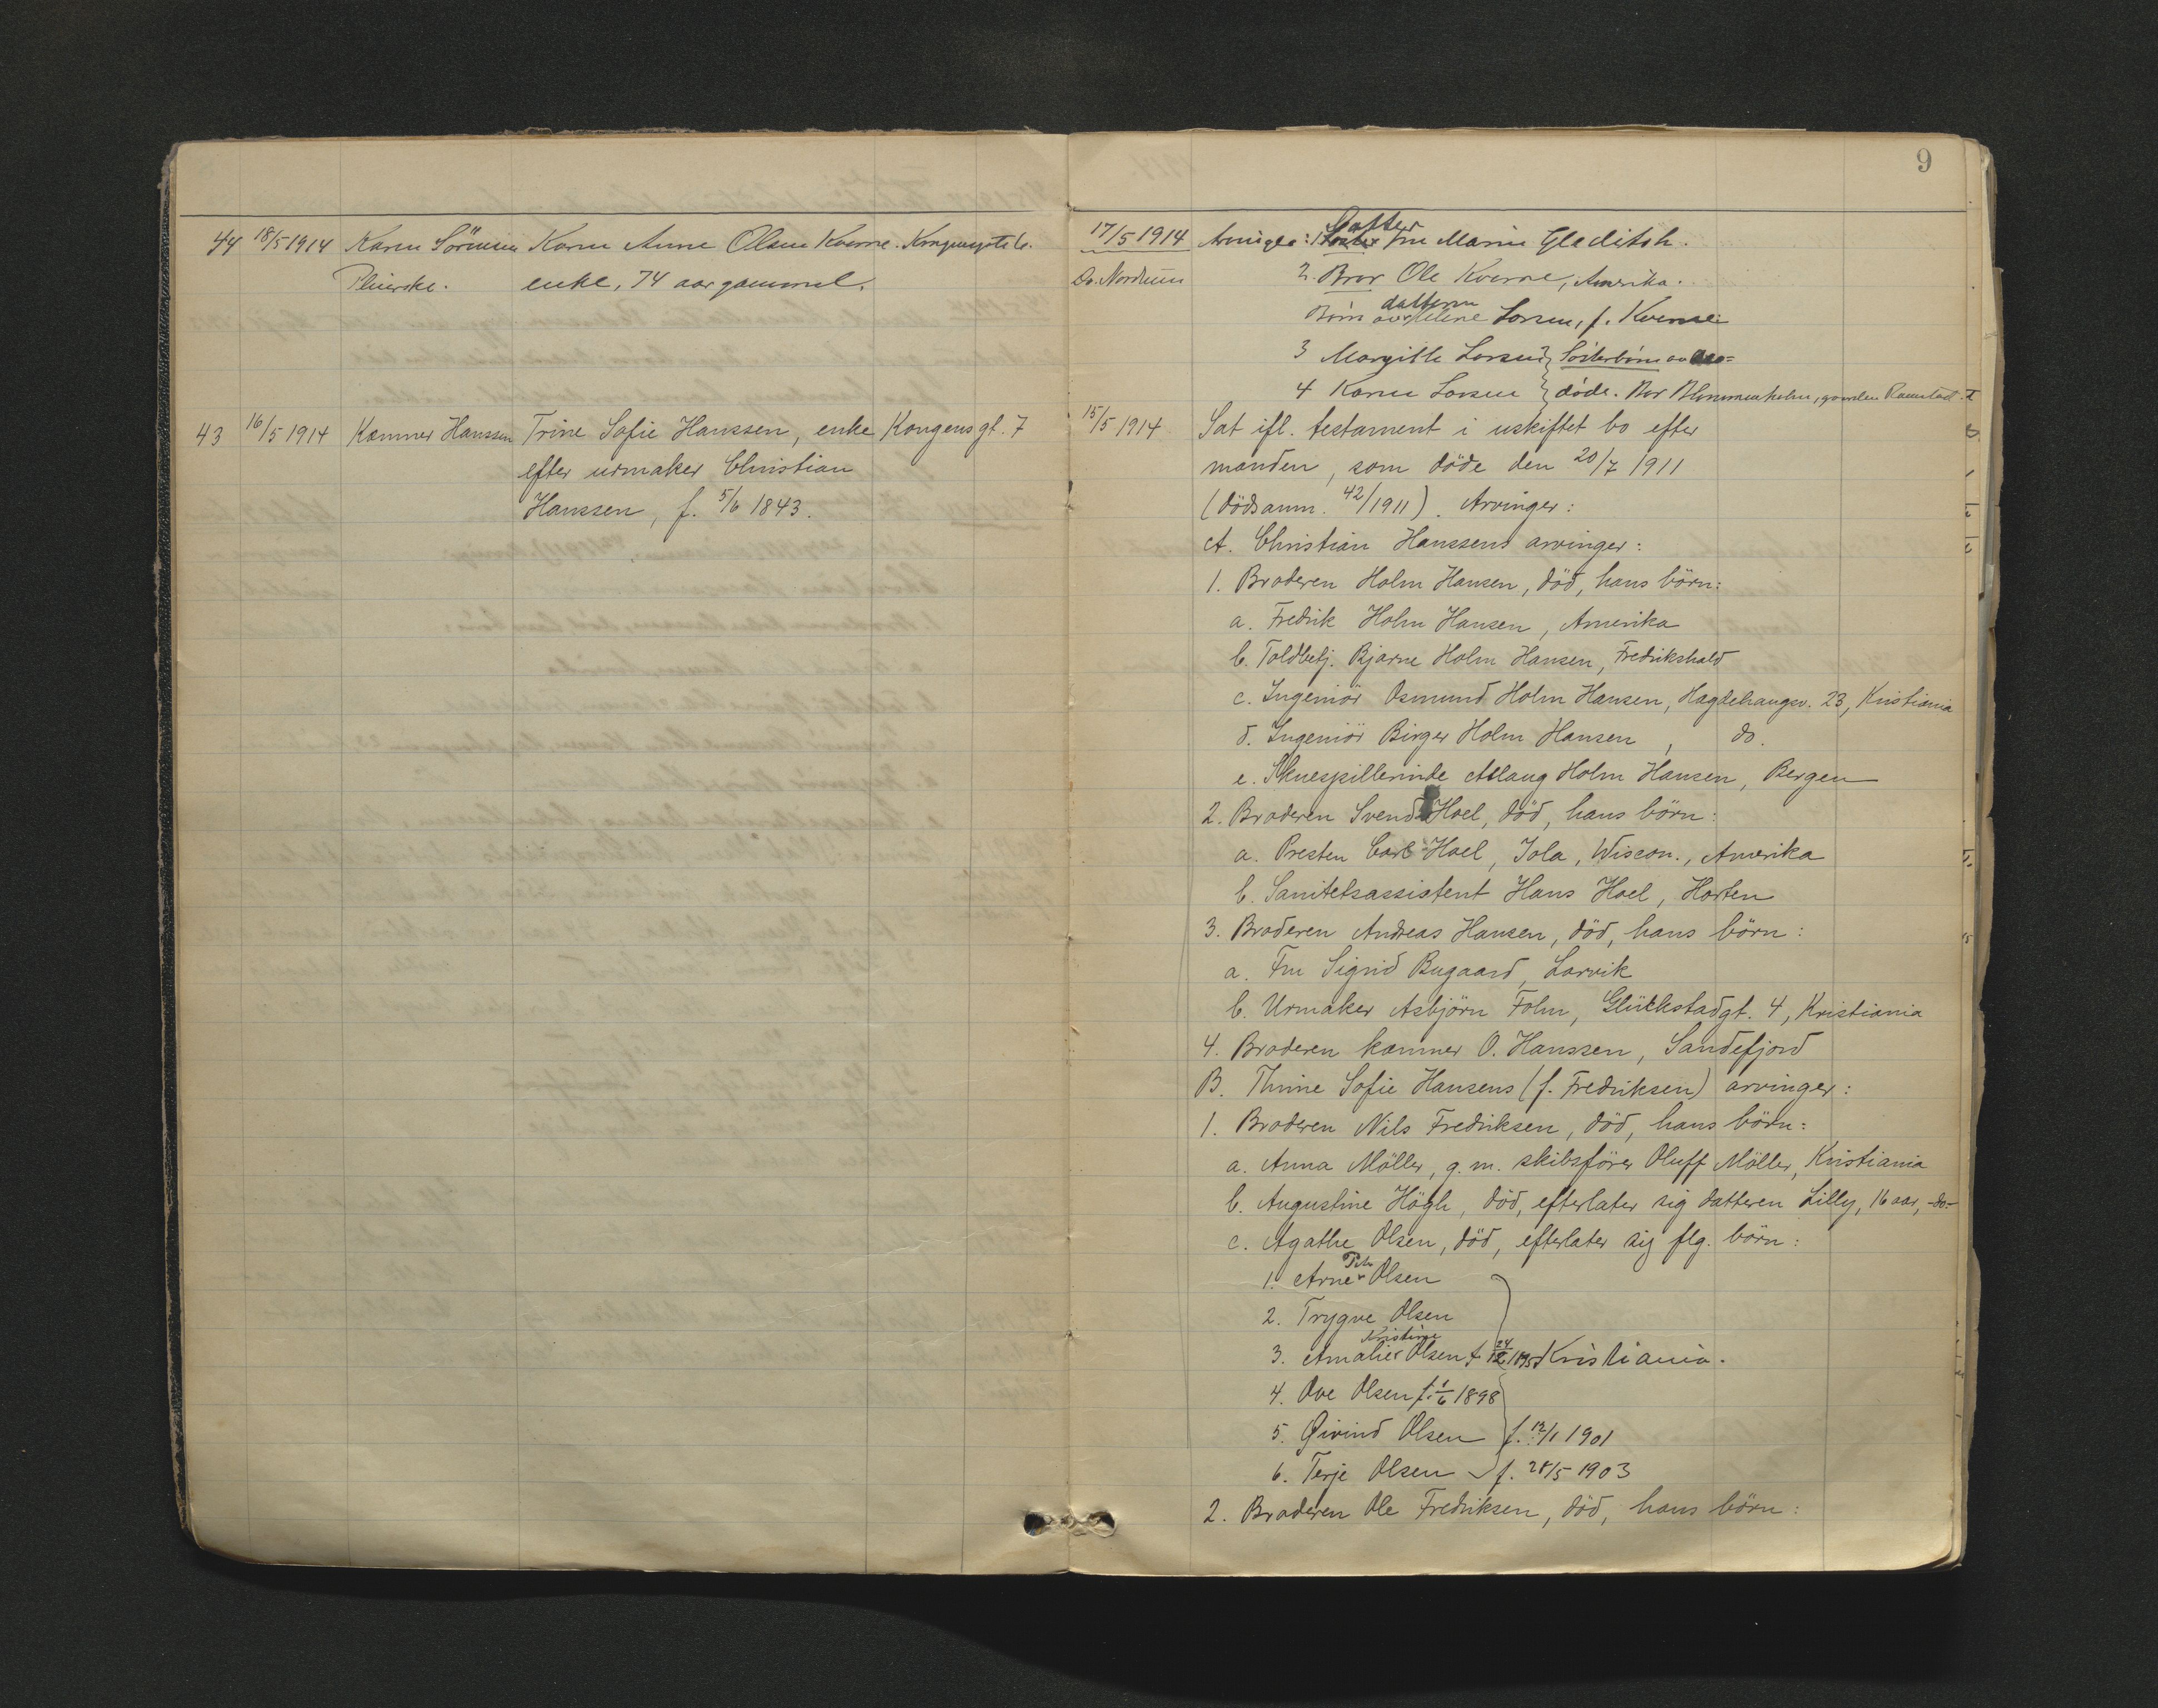 9
44 18/5 1914 Karen Sörensen Karen Anne Olsen Kverne. 17/5 1914 Arvinger: 1. Datter Fru Marie Gleditsh.
Pleierske. enke, 74 aar gammel. Dr. Nordum 2. Bror Ole Kverne, Amerika.
Börn av datteren Larsen, f. Kverne:
3 Margith Larsen Sösterbörn av
4 Karen Larsen döde. Bor Blommenholm, gaarden Ramstad.
43 16/5 1914 Kæmner Hanssen Trine Sofie Hanssen, enke Kongensgt. 7 15/5 1914 Sat ifl. testament i uskiftet bo efter
efter urmaker Christian manden, som döde den 20/7 1911
Hanssen, f. 5/6 1843. (dödsanm. 42/1911). Arvinger:
A. Christian Hanssens arvinger:
1. Broderen Holm Hansen, död, hans börn:
a. Fredrik Holm Hansen, Amerika
b. Toldbetj. Bjarne Holm Hansen, Fredrikshald
c. Ingeniör Osmund Holm Hansen, Hagdehaugsv. 23, Kristiania
d. Ingeniör Birger Holm Hansen, do.
e. Skuespillerinde Aslaug Holm Hansen, Bergen
2. Broderen Svend Hoel, död, hans börn:
a. Presten Carl Hoel, Iola, Wiscon., Amerika
b. Sanitetsassistent Hans Hoel, Horten
3. Broderen Andreas Hansen, död, hans börn:
a. Fru Sigrid Bugaard, Larvik
b. Urmaker Asbjörn Folm, Glückstadgt. 4, Kristiania
4. Broderen kæmner O. Hanssen, Sandefjord
B. Thrine Sofie Hansens (f. Fredriksen) arvinger:
1. Broderen Nils Fredriksen, död, hans börn:
a. Anna Möller, g.m. skibsförer Oluff Möller, Kristiania
b. Augustine Högh, död, efterlater sig datteren Lilly, 16 aar, -do-
c. Agathe Olsen, död, efterlater sig flg. börn:
1. Arne Olsen
2. Trygve Olsen
3. Amalie Kristine Olsen f. Kristiania.
4. Ove Olsen f. 1/6 1898
5. Øivind Olsen f. 12/1 1901
6. Terje Olsen f. 28/5 1903
2. Broderen Ole Fredriksen, död, hans börn: